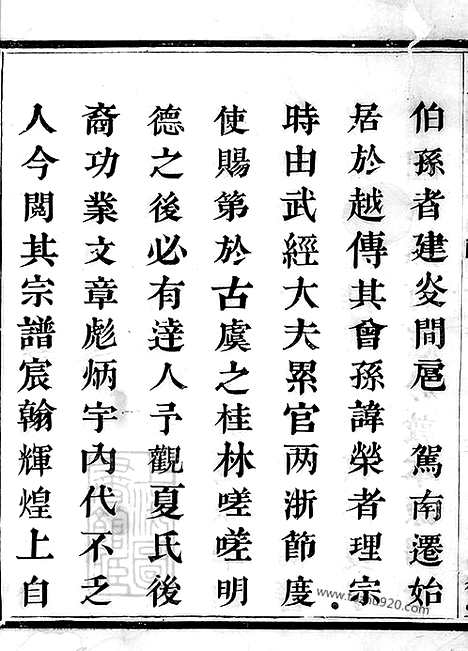 伯孫者建炎間扈 駕南遷始
居於越傳其曾孫諱榮者理宗
時由武經大夫累官两浙節度
使賜第於古虞之桂林嗟嗟明
德之後必有達人予觀夏氏後
裔功業文章彪炳宇內代不乏
人今閱其宗譜宸翰輝煌上自